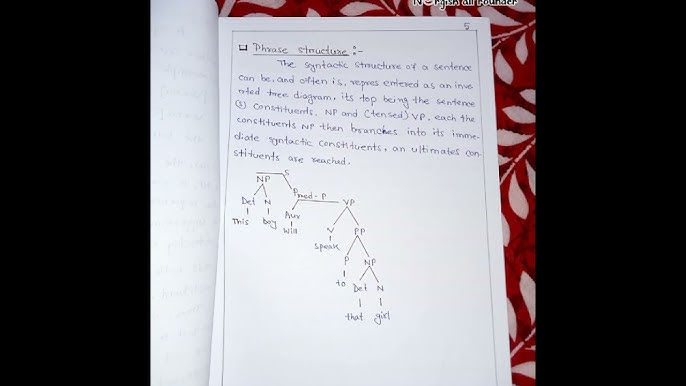 5
Phrase structure :-
The syntactic structure of a sentence
can be, and often is, repres entered as an inve-
rted tree diagram, its top being the sentence
(S) constituents. NP and (tensed) VP, each the
constituents NP then branches into its imme-
diate syntactic constituents, an ultimates con-
stituents are reached.
S
NP Pred-P VP
Det N Aux V PP
This boy will speak P NP
to Det N
that girl